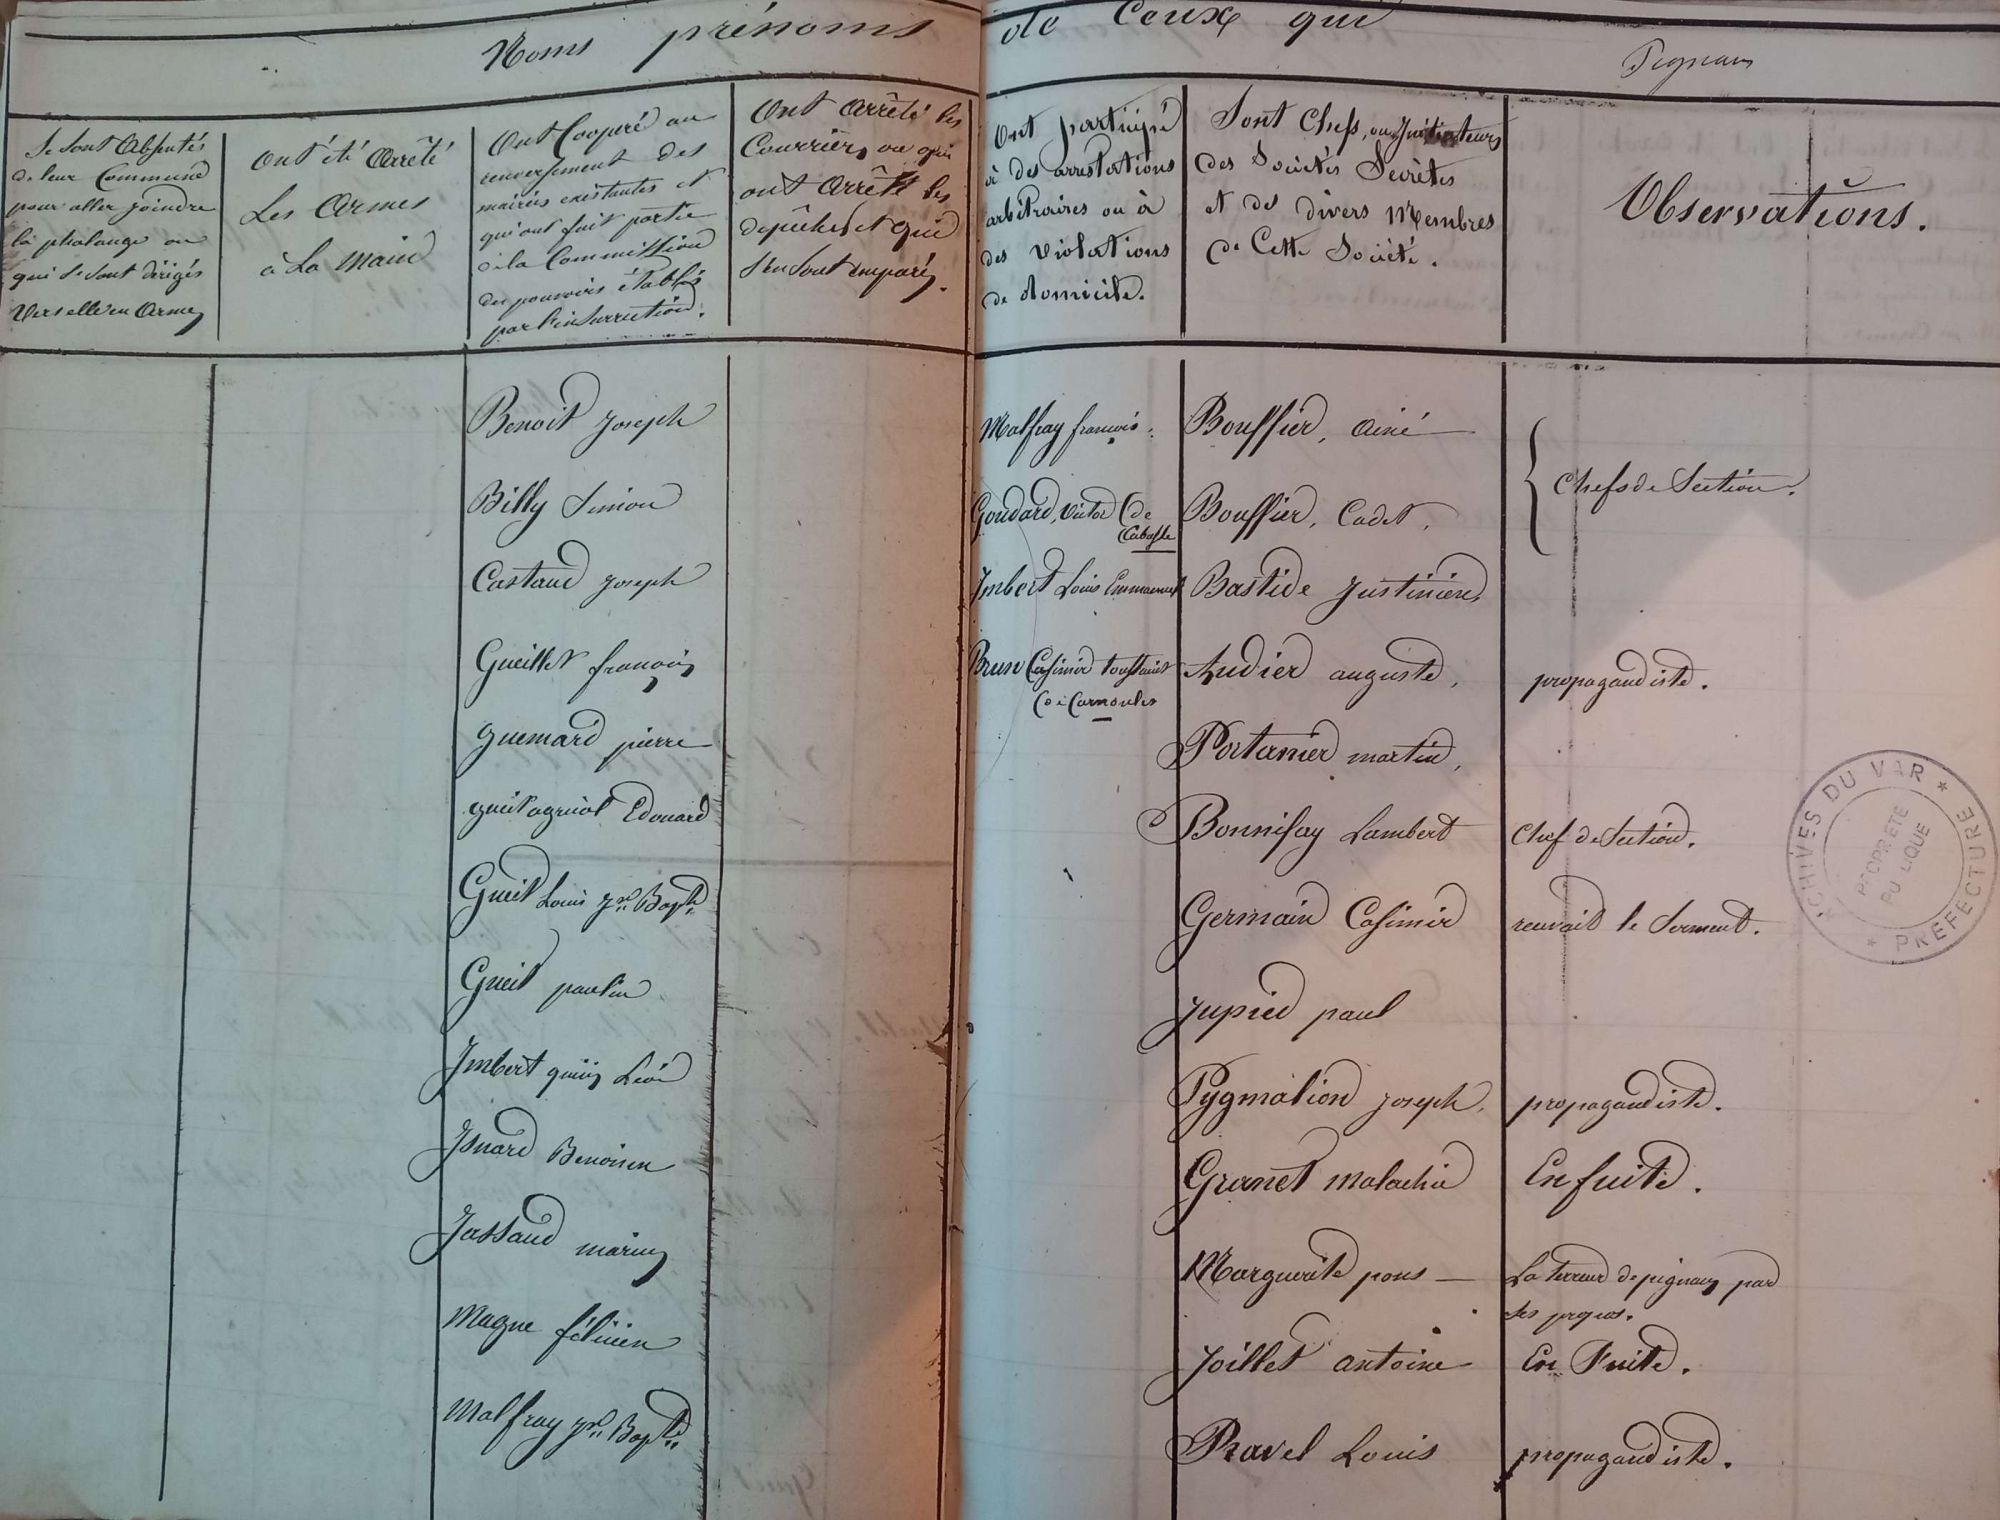 Noms prénoms de ceux qui
Pignans
Se sont Absentés
de leur Commune
pour aller joindre
la phalange ou
qui se sont dirigés
vers elle en Armes
Ont été Arrêté
Les Armes
à La Main
Ont Coopéré au
renversement des
mairies existantes et
qui ont fait partie
de la Commission
des pouvoirs établis
par l'insurrection.
Ont Arrêté les
Courriers ou qui
ont Arrêté les
depêches et qui
s'en sont emparés.
Ont participé
à des arrestations
arbitraires ou à
des violations
de domicile.
Sont Chefs, ou Initiateurs
des Sociétés Secrètes
et des divers Membres
de Cette Société.
Observations.
Benoit Joseph
Billy Simion
Castaud Joseph
Gueillet françois
Guemard pierre
Edouard
Gueit Louis Jn Bapte
Gueit paulin
Imbert Léon
Isnard
Jassaud marius
Magne félicien
Malfray Jn Bapte
Malfray françois.
Goudard, Victor (de
Cabasse
Imbert Louis Emmanuel
Brun Casimir toussaint
(de Carnoules
Bouffier, ainé
Bouffier, Cadet.
Chefs de Section.
Bastide Justinien,
Audier auguste, propagandiste.
Portanier martin,
Bonnifay Lambert Chef de Section.
Germain Casimir recevait le Serment.
Jupied paul
Pygmalion Joseph, propagandiste.
Granet malachie En fuite.
Marguerite pons — La terreur de pignans par
ses propos.
Joillet antoine En Fuite.
Ravel Louis propagandiste.
ARCHIVES DU VAR
PROPRIETE
PUBLIQUE
PREFECTURE